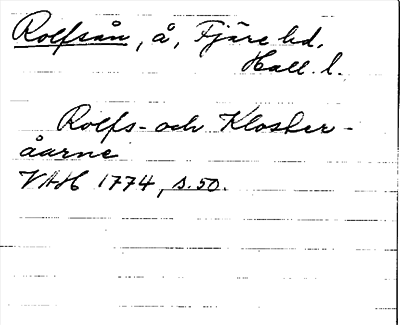 Rolfsån, å, Fjäre hd.
Hall. l.
Rolfs- och Kloster-
åarne
VAH 1774, s. 50.